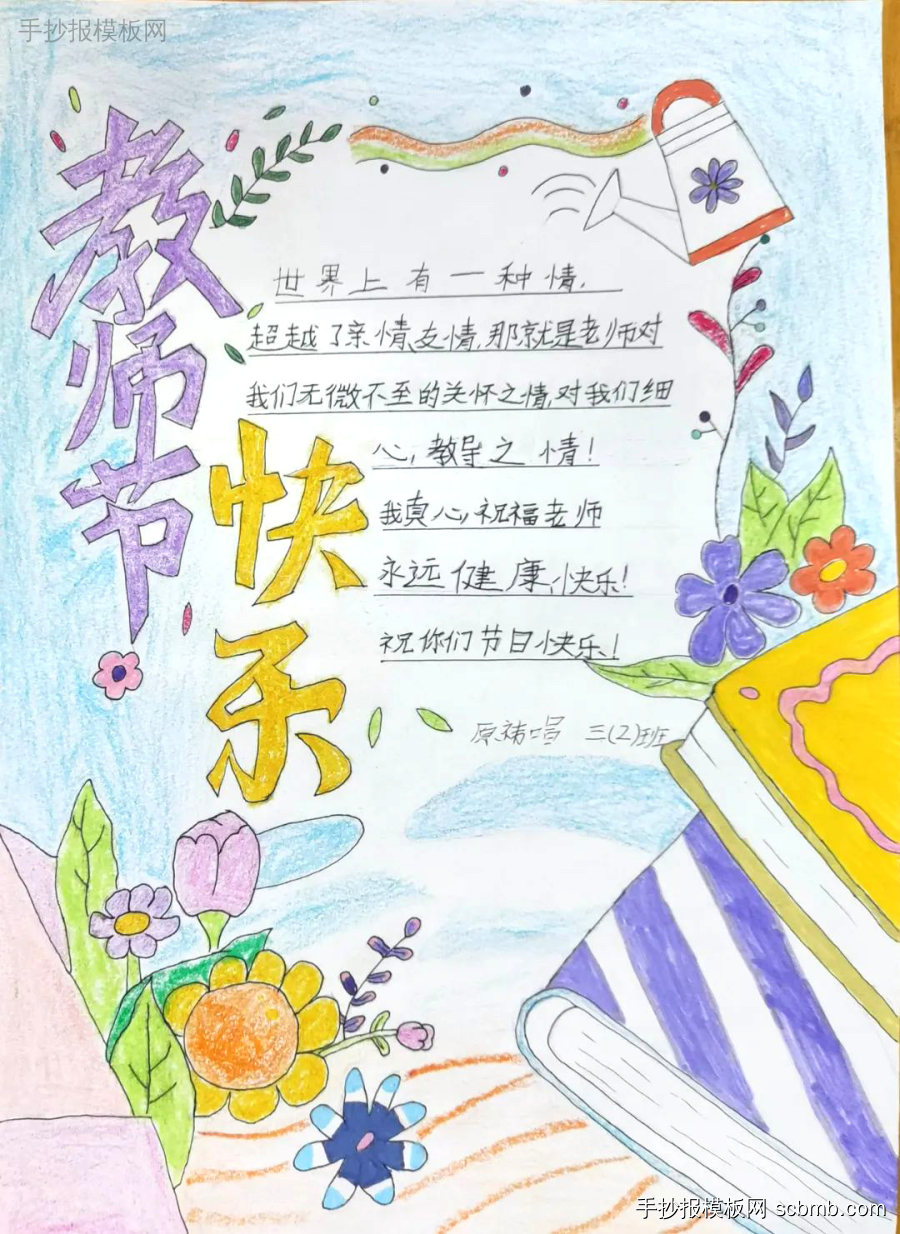 手抄报模板网
教师节
快乐
世界上有一种情,
超越了亲情、友情,那就是老师对
我们无微不至的关怀之情,对我们细
心,教导之情!
我真心祝福老师
永远健康、快乐!
祝你们节日快乐!
三(2)班
手抄报模板网 scbmb.com